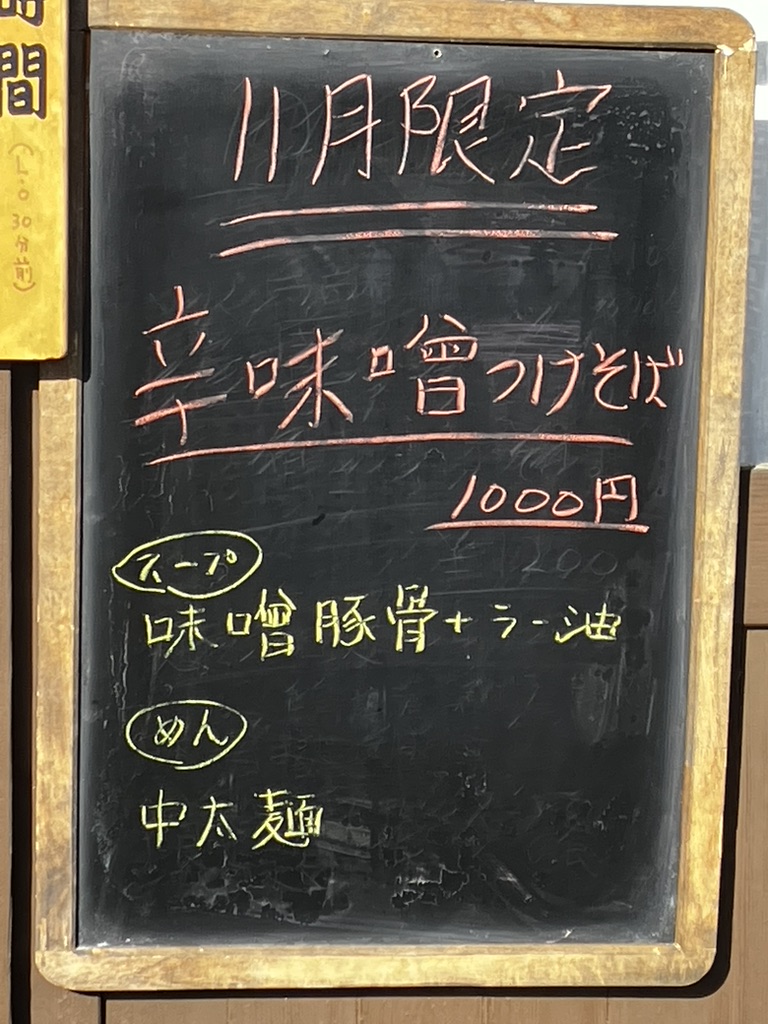 間
(L.O 30分前)
11月限定
辛味噌つけそば
1000円
スープ
味噌豚骨+ラー油
めん
中太麺